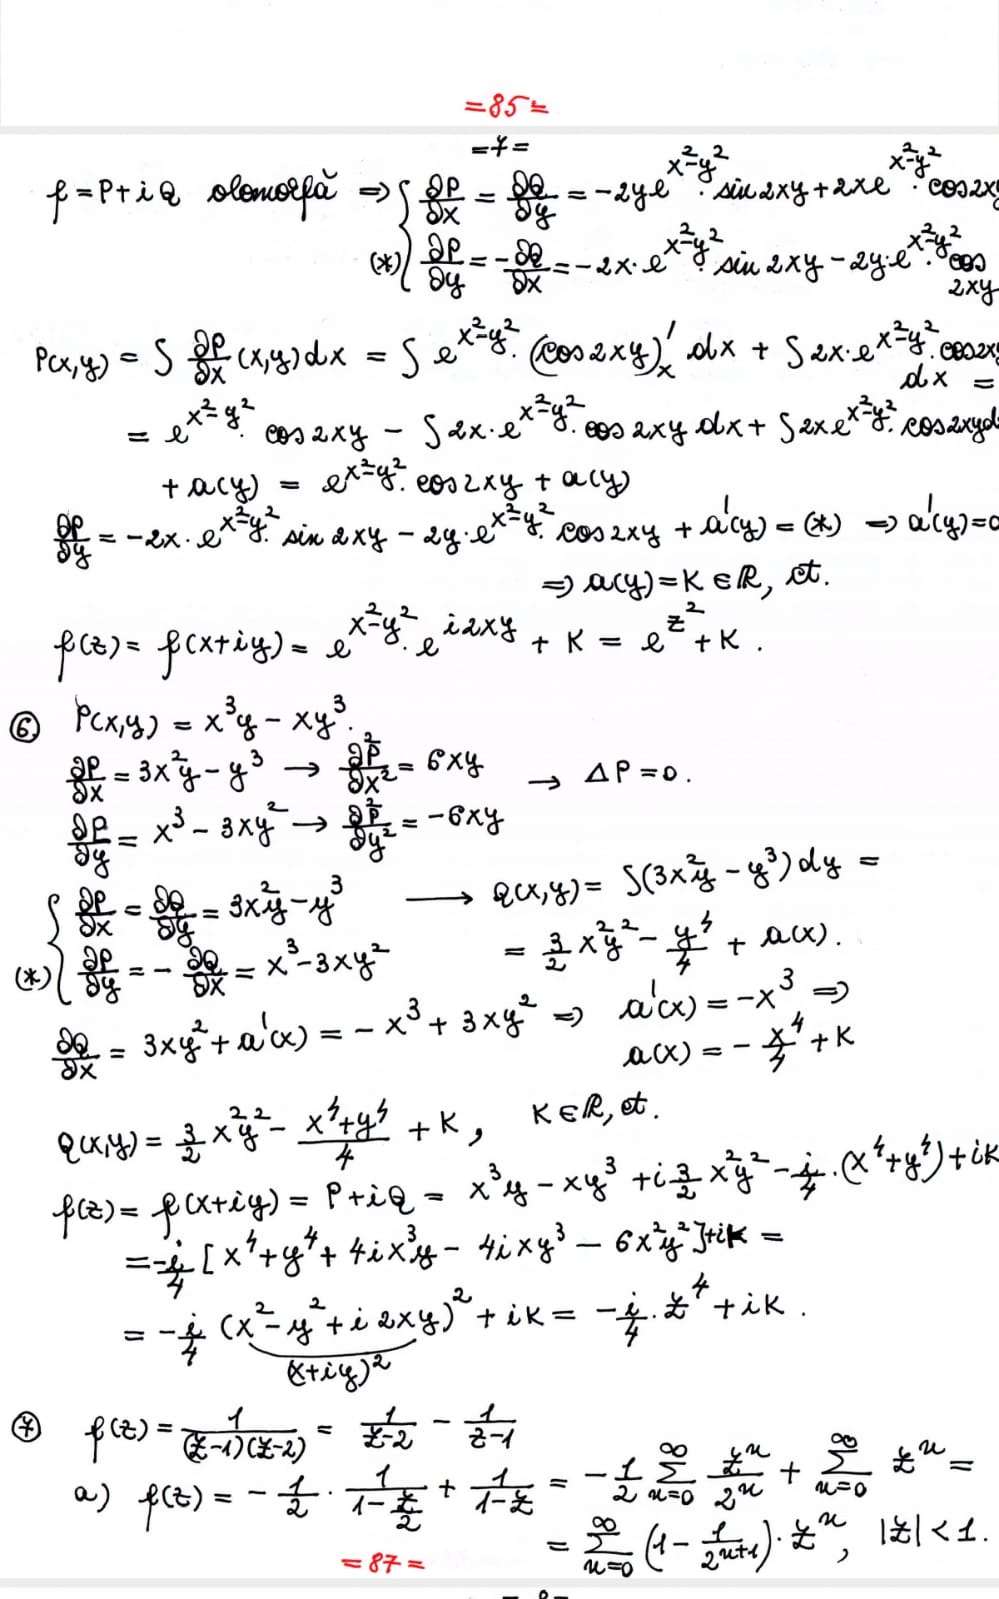 =85=
=7=
f=P+iQ olomorfă ⇒ { ∂P/∂x = ∂Q/∂y = -2ye^(x²-y²)· sin2xy + 2xe^(x²-y²)· cos2xy
(*) { ∂P/∂y = -∂Q/∂x = -2x·e^(x²-y²)· sin2xy - 2y·e^(x²-y²)· cos
2xy
P(x,y) = ∫ ∂P/∂x (x,y)dx = ∫ e^(x²-y²)· (cos2xy)'ₓ dx + ∫ 2x·e^(x²-y²)· cos2xy
dx =
= e^(x²-y²)· cos2xy - ∫ 2x·e^(x²-y²)· cos2xy dx + ∫ 2xe^(x²-y²)· cos2xyd
+ a(y) = e^(x²-y²)· cos2xy + a(y)
∂P/∂y = -2x·e^(x²-y²)· sin2xy - 2y·e^(x²-y²)· cos2xy + a'(y) = (*) ⇒ a'(y)=0
⇒ a(y)=K∈ℝ, ct.
f(z) = f(x+iy) = e^(x²-y²)· e^(i2xy) + K = e^(z²) + K.
⑥ P(x,y) = x³y - xy³.
∂P/∂x = 3x²y - y³ → ∂²P/∂x² = 6xy
→ ΔP=0.
∂P/∂y = x³ - 3xy² → ∂²P/∂y² = -6xy
{ ∂P/∂x = ∂Q/∂y = 3x²y - y³ ⟶ Q(x,y) = ∫(3x²y - y³)dy =
= 3/2 x²y² - y⁴/4 + a(x).
(*) { ∂P/∂y = -∂Q/∂x = x³ - 3xy²
∂Q/∂x = 3xy² + a'(x) = -x³ + 3xy² ⇒ a'(x) = -x³ ⇒
a(x) = -x⁴/4 + K
Q(x,y) = 3/2 x²y² - (x⁴+y⁴)/4 + K, K∈ℝ, ct.
f(z) = f(x+iy) = P+iQ = x³y - xy³ + i 3/2 x²y² - i/4·(x⁴+y⁴) + iK
= -i/4 [x⁴+y⁴+4ix³y - 4ixy³ - 6x²y²]+iK =
= -i/4 (x²-y²+i2xy)² + iK = -i/4·z⁴ + iK.
(x+iy)²
⑦ f(z) = 1/((z-1)(z-2)) = 1/(z-2) - 1/(z-1)
a) f(z) = -1/2 · 1/(1-z/2) + 1/(1-z) = -1/2 ∑_(n=0)^∞ zⁿ/2ⁿ + ∑_(n=0)^∞ zⁿ =
= ∑_(n=0)^∞ (1 - 1/2^(n+1))·zⁿ, |z|<1.
=87=